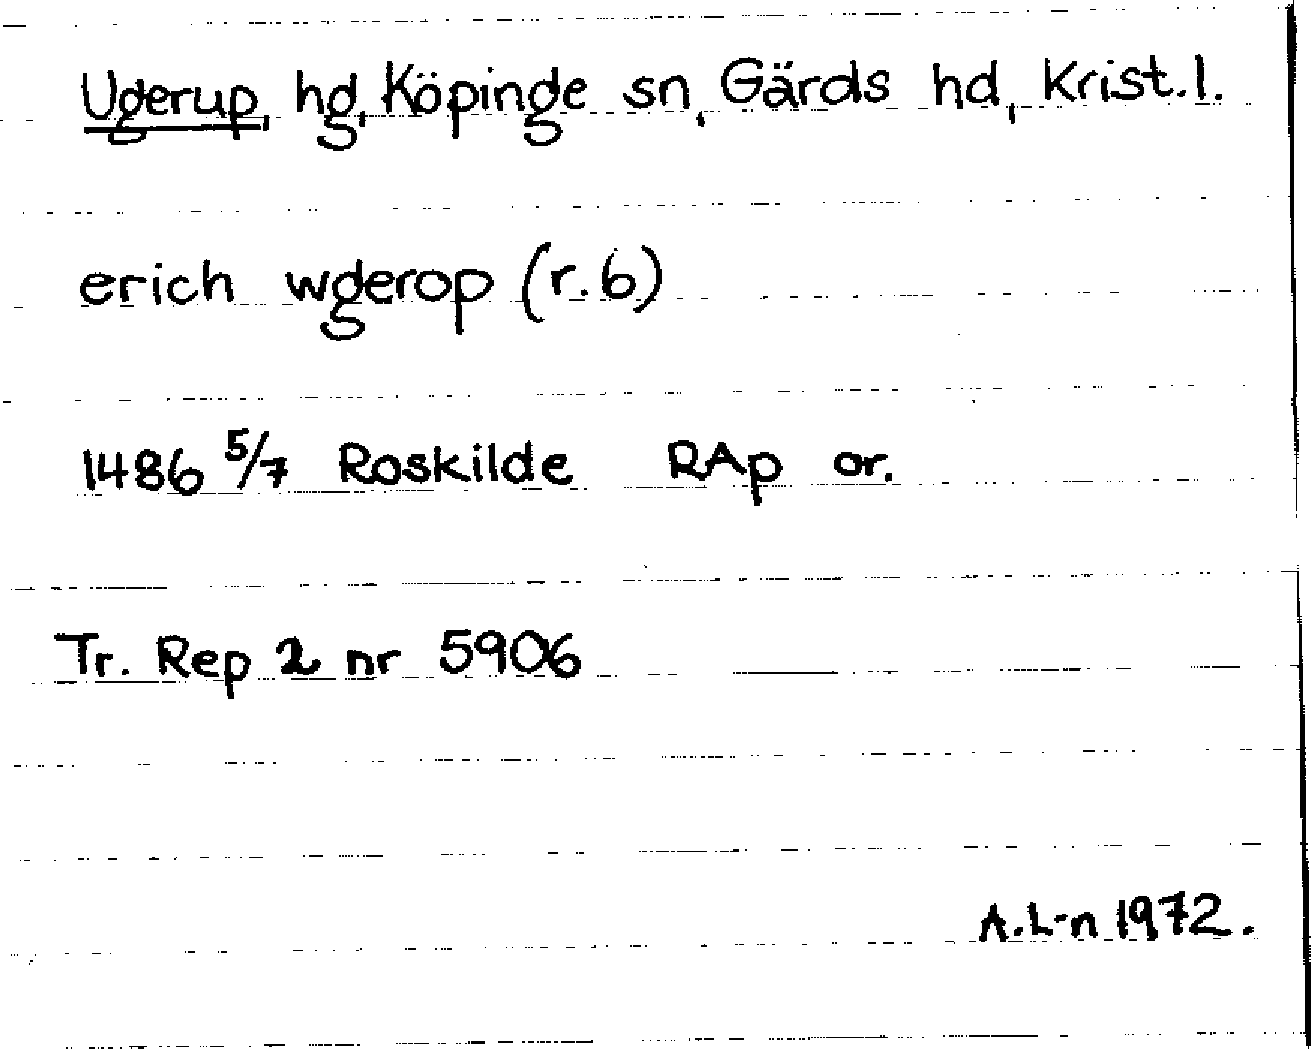 Ugerup, hg, Köpinge sn, Gärds hd, Krist.l.
erich wgerop (r.6)
1486 5/7 Roskilde RAp or.
Tr. Rep 2 nr 5906
A.L-n 1972.